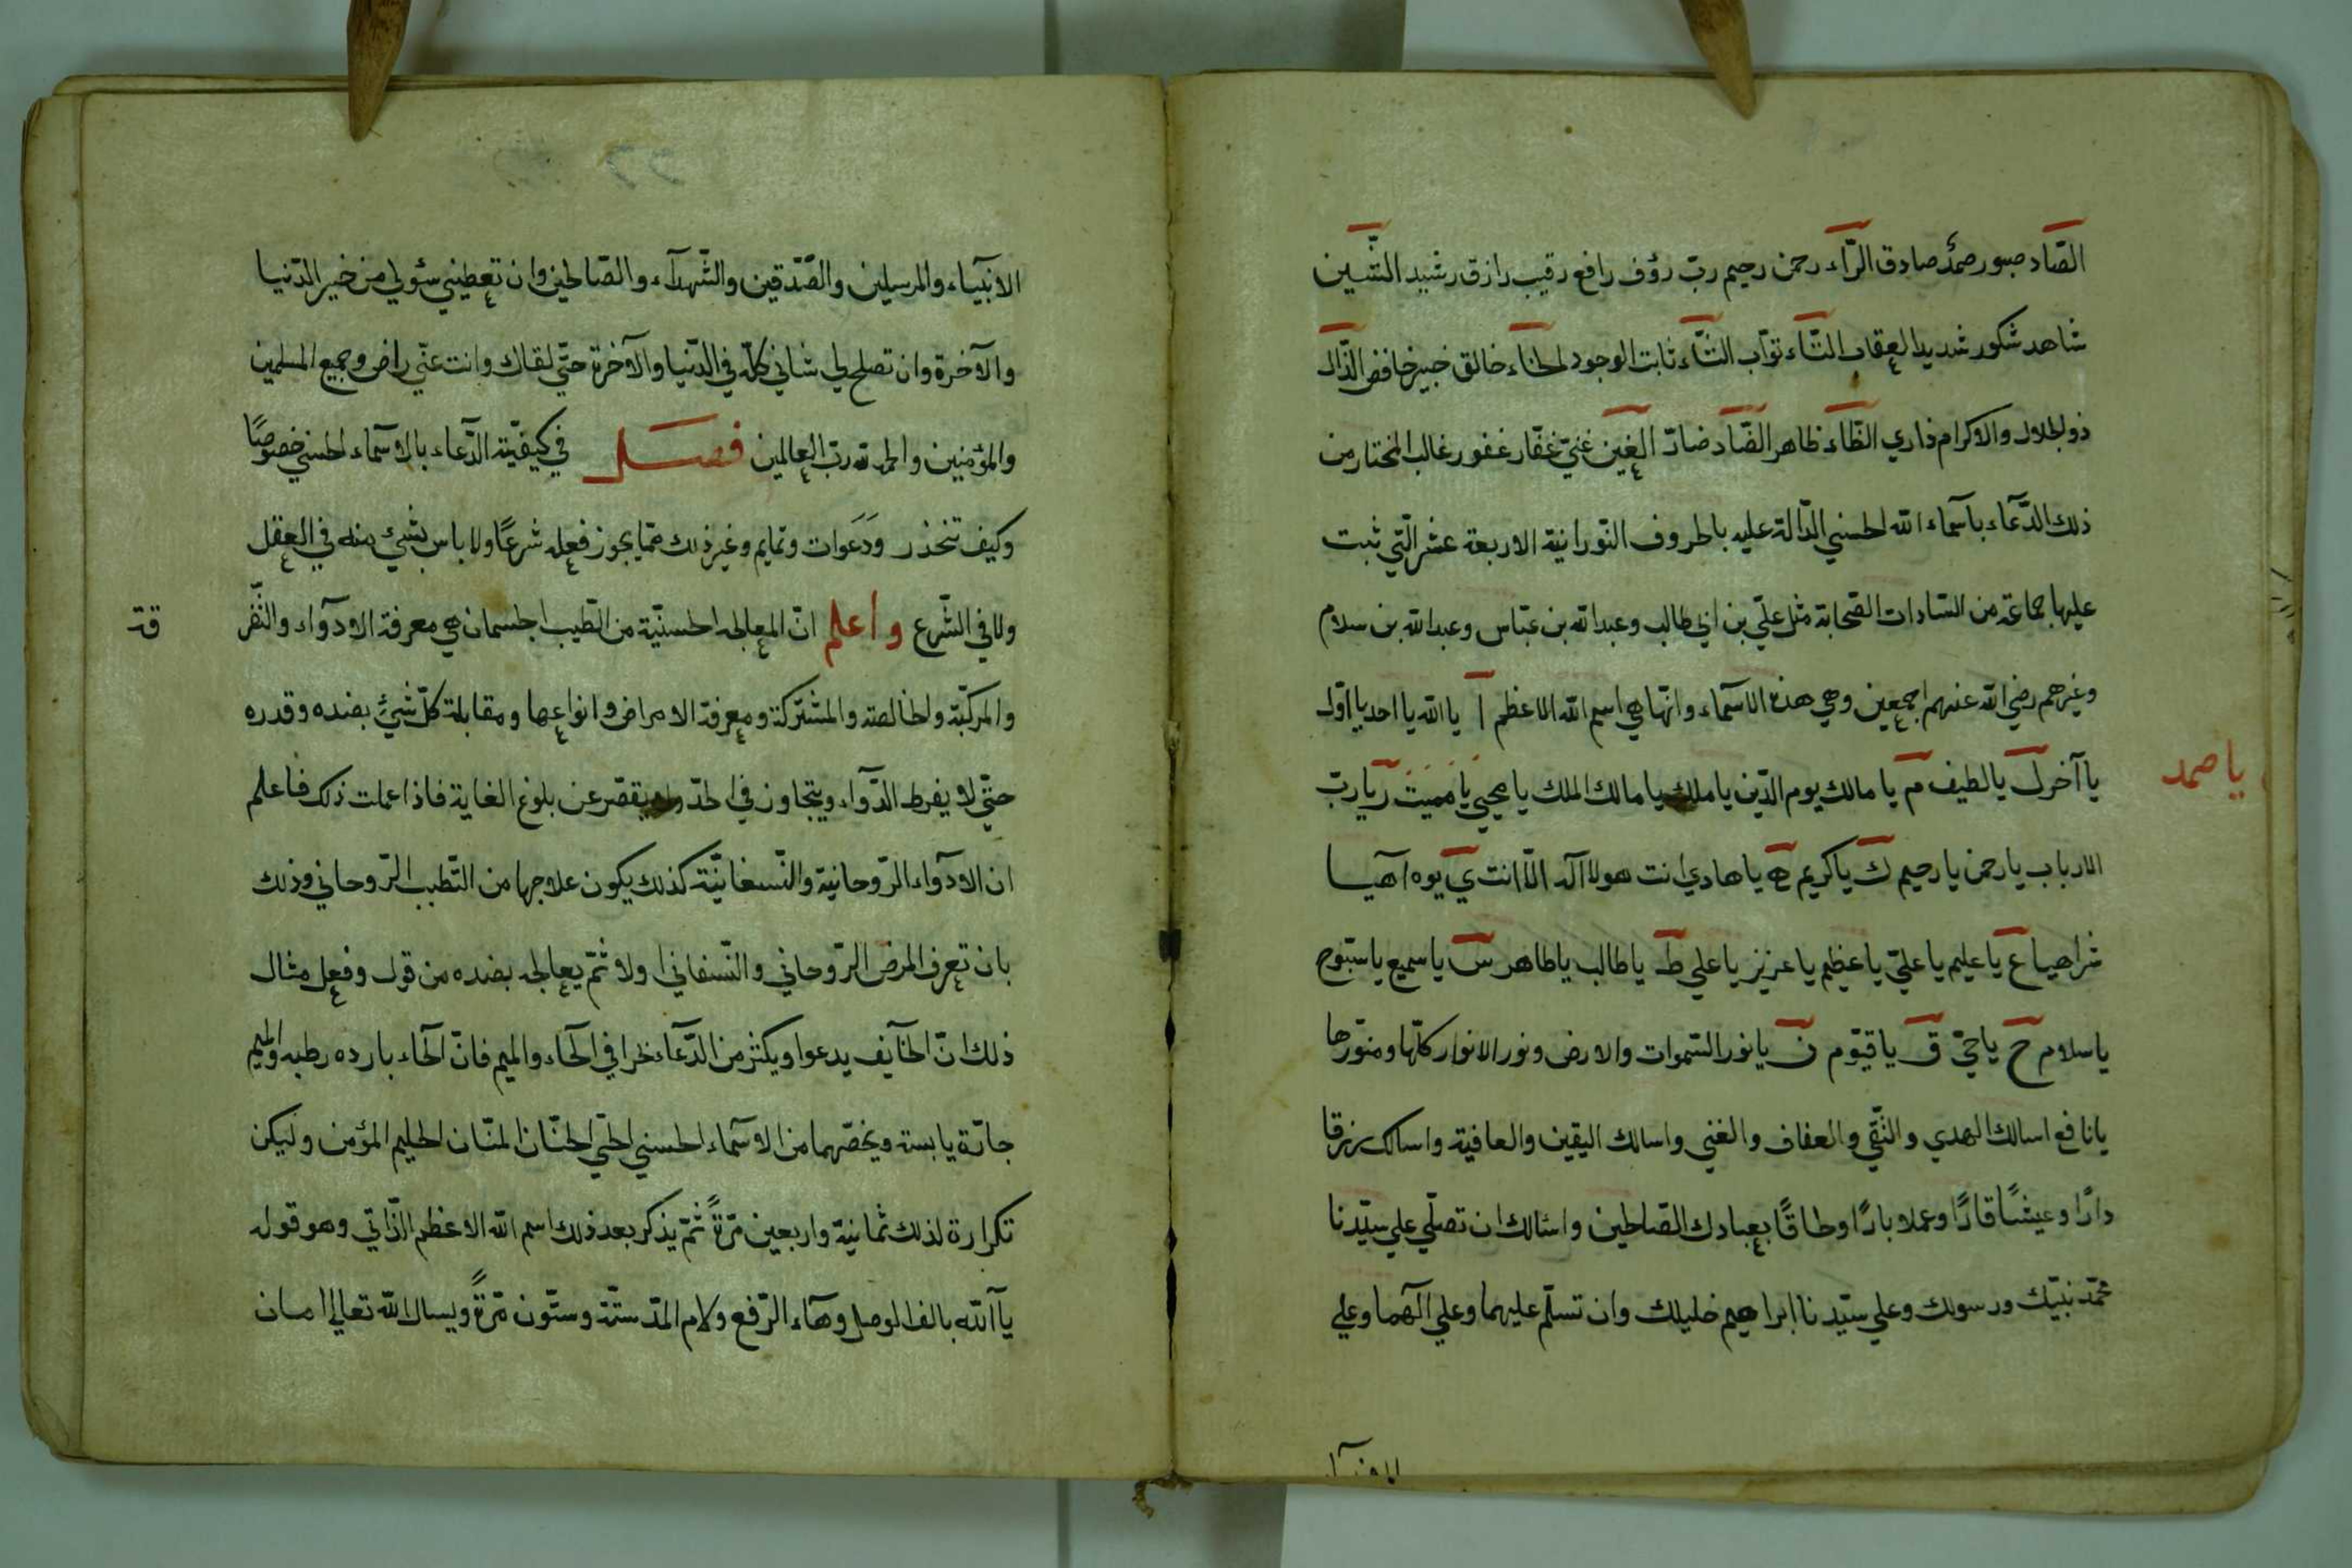 الصّاد صبور صمد صادق الرّاء رحمن رحيم ربّ رؤف رافع رقيب رازق رشيد الشّين
شاهد شكور شديد العقاب التّاء توّاب الثّاء ثابت الوجود الخاء خالق خبير خافض الذّال
ذو الجلال والاكرام ذاري الظّاء ظاهر الضّاد ضادّ الغين غنيّ غفّار غفور غالب المختار من
ذلك الدّعاء باسماء الله الحسني الدّالة عليه بالحروف النّورانية الاربعة عشر الّتي ثبت
عليها جماعة من السّادات الصّحابة مثل عليّ بن ابي طالب وعبد الله بن عبّاس وعبد الله بن سلام
وغيرهم رضي الله عنهم اجمعين وهي هذه الاسماء وانّها هي اسم الله الاعظم ا يا الله يا احد يا اوّل
يا آخر ل يا لطيف م يا مالك يوم الدّين يا ملك يا مالك الملك يا محيي يا مميت ر يا ربّ
يا صمد
الارباب يا رحمن يا رحيم ك يا كريم ه يا هادي انت هو لا اله الّا انت ي يوه اهيا
شراهيا ع يا عليم يا عليّ يا عظيم يا عزيز يا علي ط يا طالب يا طاهر س يا سميع يا سبّوح
يا سلام ح يا حيّ ق يا قيّوم ن يا نور السّموات والارض ونور الانوار كلّها ومنوّرها
يا نافع اسالك الهدي والتّقي والعفاف والغني واسالك اليقين والعافية واسالك رزقا
دارّا وعيشًا قارّا وعملا بارًّا وحاقًّا بعبادك الصّالحين واسالك ان تصلّي علي سيّدنا
محمّد نبيّك ورسولك وعلي سيّدنا ابراهيم خليلك وان تسلّم عليهما وعلي آلهما وعلي
الانبيآء والمرسلين والصّدّقين والشّهدآء والصّالحين وان تعطيني سؤلي من خير الدّنيا
والآخرة وان تصلح لي شاني كلّه في الدّنيا والآخرة حتّي لقاك وانت عنّي راض وجميع المسلمين
والمؤمنين والحمد لله ربّ العالمين فصل في كيفيّة الدّعاء بالاسمآء الحسني خصوصًا
وكيف تتخذ ر ودَعَوات وتمايم وغير ذلك ممّا يجوز فعله شرعًا ولا باس بشيء منه في العقل
ولا في الشّرع واعلم انّ المعالجه الحسنيّة من الطّيب الجسمان هي معرفة الادوآء والنّفر
قة
والمركبّة والخالصة والمشتركة ومعرفة الامراض وانواعها ومقابلة كلّ شيء بضده وقدره
حتّي لا يفرط الدّوآء ويتجاوز في الحدّ ولا يقصّر عن بلوغ الغاية فاذا علمت ذلك فاعلم
ان الادوآء الرّوحانية والنّسفانيّة كذلك يكون علاجها من التّطبب الرّوحاني وذلك
بان تعرف المرض الرّوحاني والنّسفاني اولا ثمّ يعالجه بضده من قول وفعل مثال
ذلك انّ الخآيف يدعوا ويكثر من الدّعآء نظرا في الحآء والميم فانّ الحآء بارده رطبه والميم
حارّة يابسة ويخصّهما من الاسمآء الحسني الحيّ الحنّان المنّان الحليم المؤمن وليكن
تكرارة لذلك ثمانية واربعين مرّةً ثمّ يذكر بعد ذلك اسم الله الاعظم الذّاتي وهو قوله
يا آلله بالف الوصل وهآء الرّفع ولام المدّ ستّة وستّون مرّةً ويسال الله تعالي امان